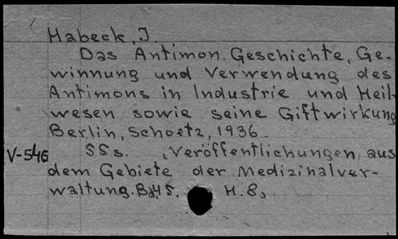 Habeck, J.
Das Antimon. Geschichte, Ge-
winnung und Verwendung des
Antimons in Industrie und Heil-
wesen sowie seine Giftwirkung
Berlin, Schoetz, 1936.
V-546 SSs. „Veröffentlichungen aus
dem Gebiete der Medizinalver-
waltung. Bd 45. H. 8„